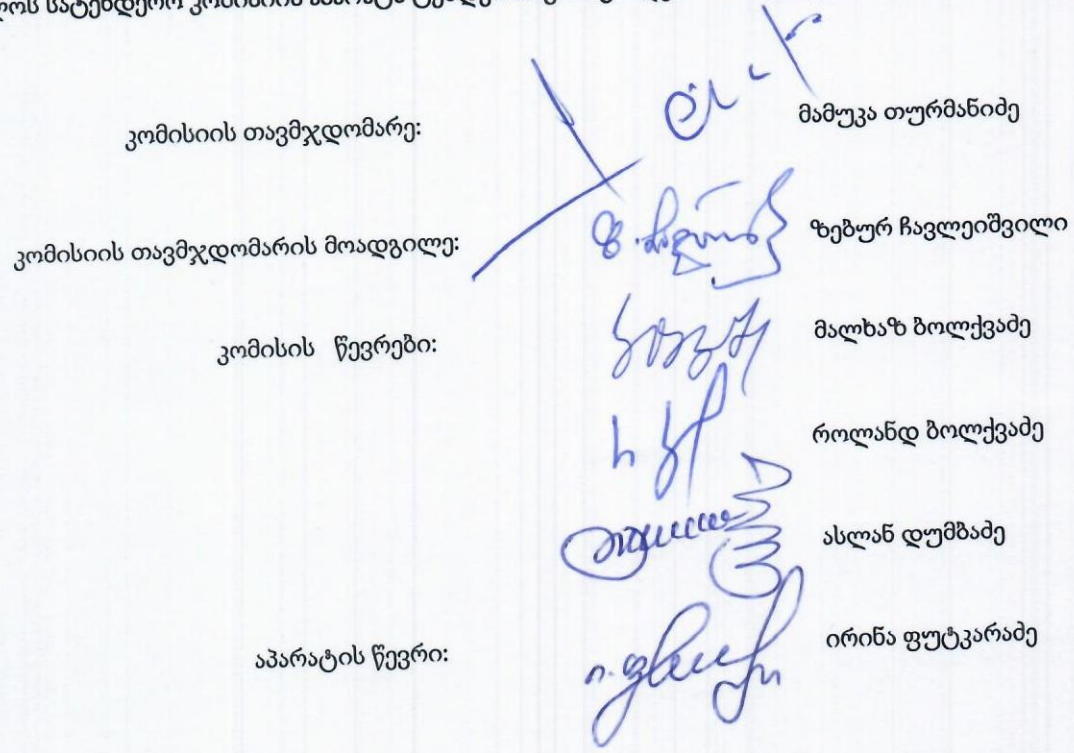 სატენდერო კომისიის აპარატს
კომისიის თავმჯდომარე: მამუკა თურმანიძე
კომისიის თავმჯდომარის მოადგილე: ზებურ ჩავლეიშვილი
კომისის წევრები: მალხაზ ბოლქვაძე
როლანდ ბოლქვაძე
ასლან დუმბაძე
აპარატის წევრი: ირინა ფუტკარაძე